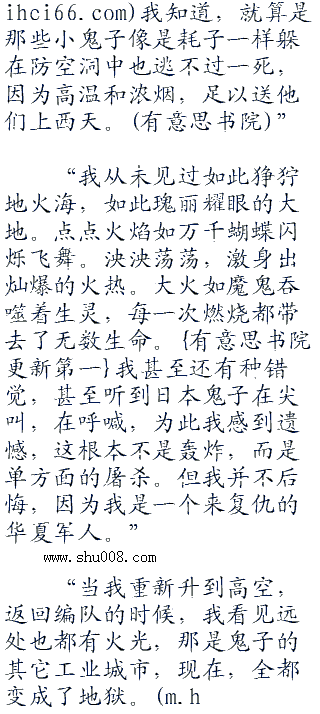 ihci66.com)我知道，就算是
那些小鬼子像是耗子一样躲
在防空洞中也逃不过一死，
因为高温和浓烟，足以送他
们上西天。(有意思书院)”
“我从未见过如此狰狞
地火海，如此瑰丽耀眼的大
地。点点火焰如万千蝴蝶闪
烁飞舞。泱泱荡荡，激身出
灿爆的火热。大火如魔鬼吞
噬着生灵，每一次燃烧都带
去了无数生命。{有意思书院
更新第一}我甚至还有种错
觉，甚至听到日本鬼子在尖
叫，在呼喊，为此我感到遗
憾，这根本不是轰炸，而是
单方面的屠杀。但我并不后
悔，因为我是一个来复仇的
华夏军人。”
www.shu008.com
“当我重新升到高空，
返回编队的时候，我看见远
处也都有火光，那是鬼子的
其它工业城市，现在，全都
变成了地狱。(m.h